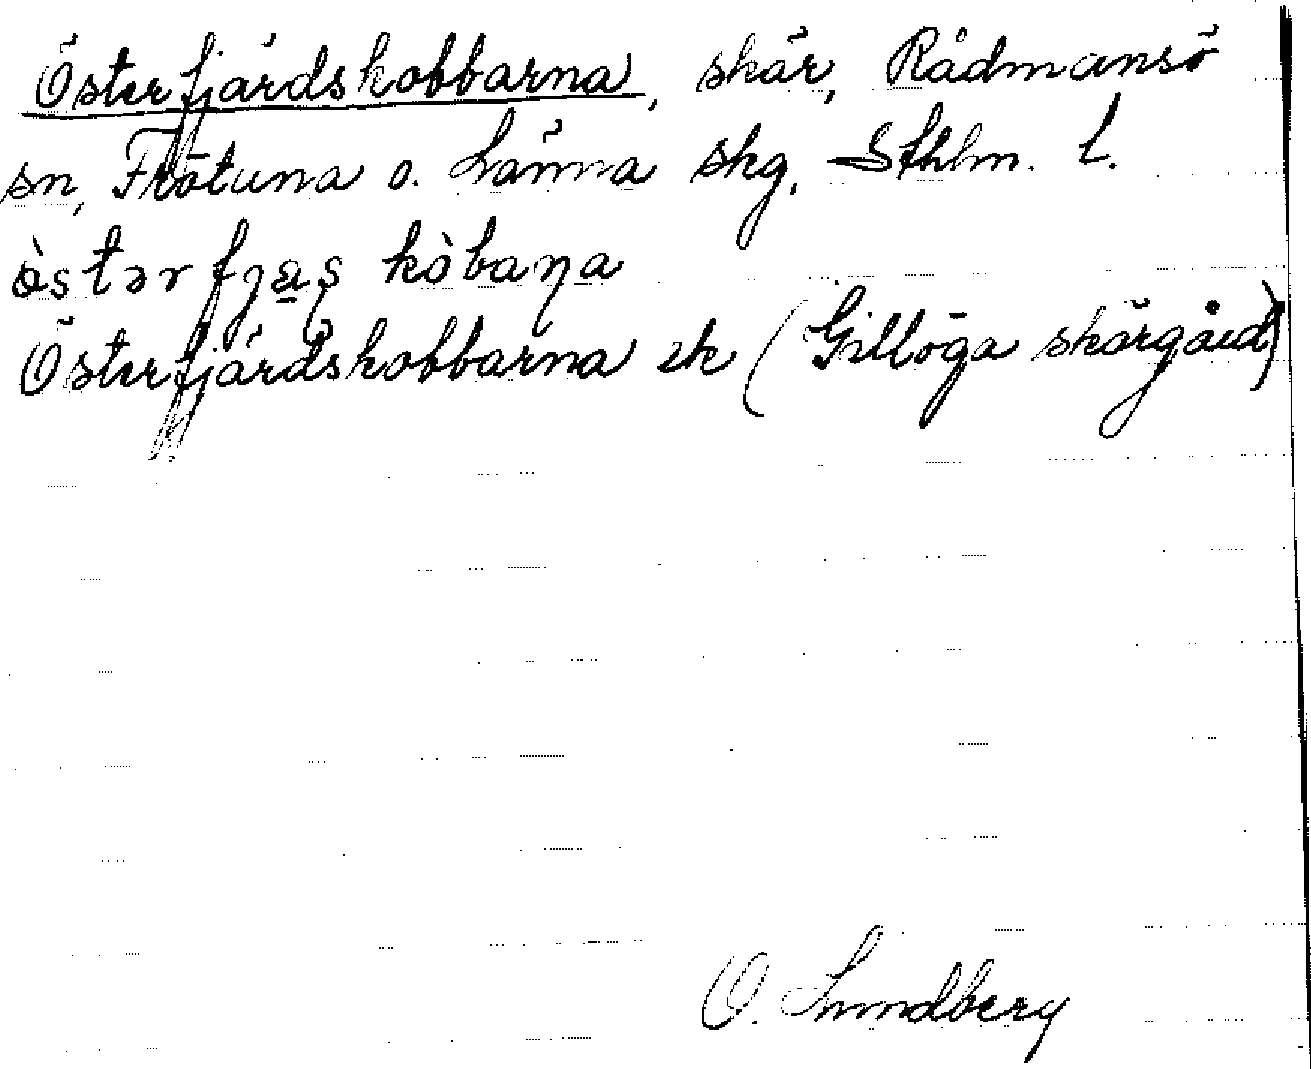 Österfjärdskobbarna, skär, Rådmansö
sn, Frötuna o. Länna skg, Sthlm. l.
kòbaŋa
Österfjärdskobbarna ek (Gillöga skärgård)
O. Lundberg